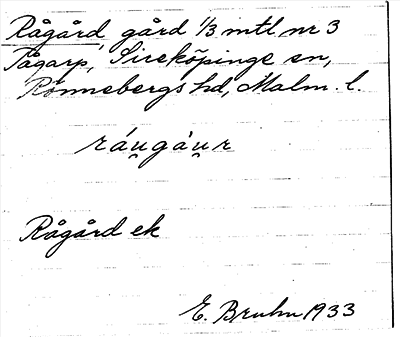 Rågård, gård 1/3 mtl nr 3
Tågarp, Sireköpinge sn,
Rönnebergs hd, Malm. l.
ráu̯gáu̯r
Rågård ek
E. Bruhn 1933